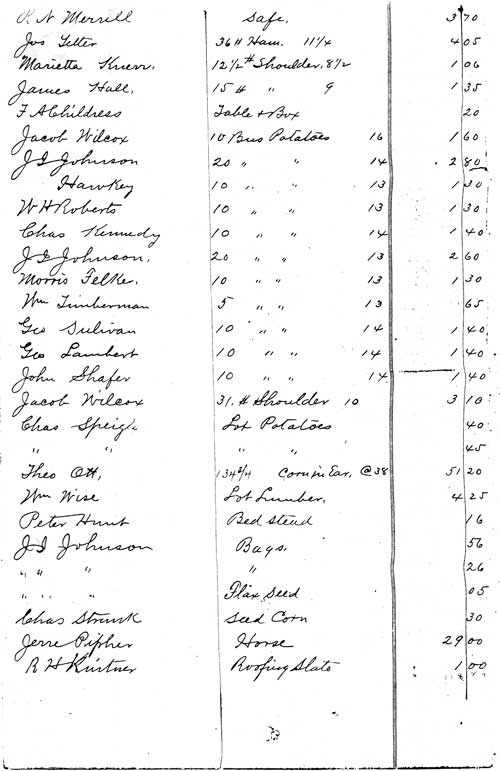 P. N Merrill Safe. 3 70
Jos Tetter 36 # Ham. 11 1/4 4 05
Marietta 12 1/2 # Shoulder. 8 1/2 1 06
James Hall. 15 # " 9 1 35
F A Childress Table & Box 20
Jacob Wilcox 10 Bus Potatoes 16 1 60
J I Johnson 20 " " 14 2 80
Hawkey 10 " " 13 1 30
W H Roberts 10 " " 13 1 30
Chas Kennedy 10 " " 14 1 40
J I Johnson. 20 " " 13 2 60
Morris Felke. 10 " " 13 1 30
Wm Timberman 5 " " 13 65
Geo Sulivan 10 " " 14 1 40
Geo Lambert 10 " " 14 1 40
John Shafer 10 " " 14 1 40
Jacob Wilcox 31. # Shoulder 10 3 10
Chas Lot Potatoes 40
" " " " 45
Theo Ott, Corn in Ear, @ 38 51 20
Wm Wise Lot Lumber. 4 25
Peter Hunt Bed stead 16
J I Johnson Bags. 56
" " " " 26
" " " Flax Seed 05
Chas Strunk Seed Corn 30
Jerre Pipher Horse 29 00
R H Kintner Roofing Slate 1 00